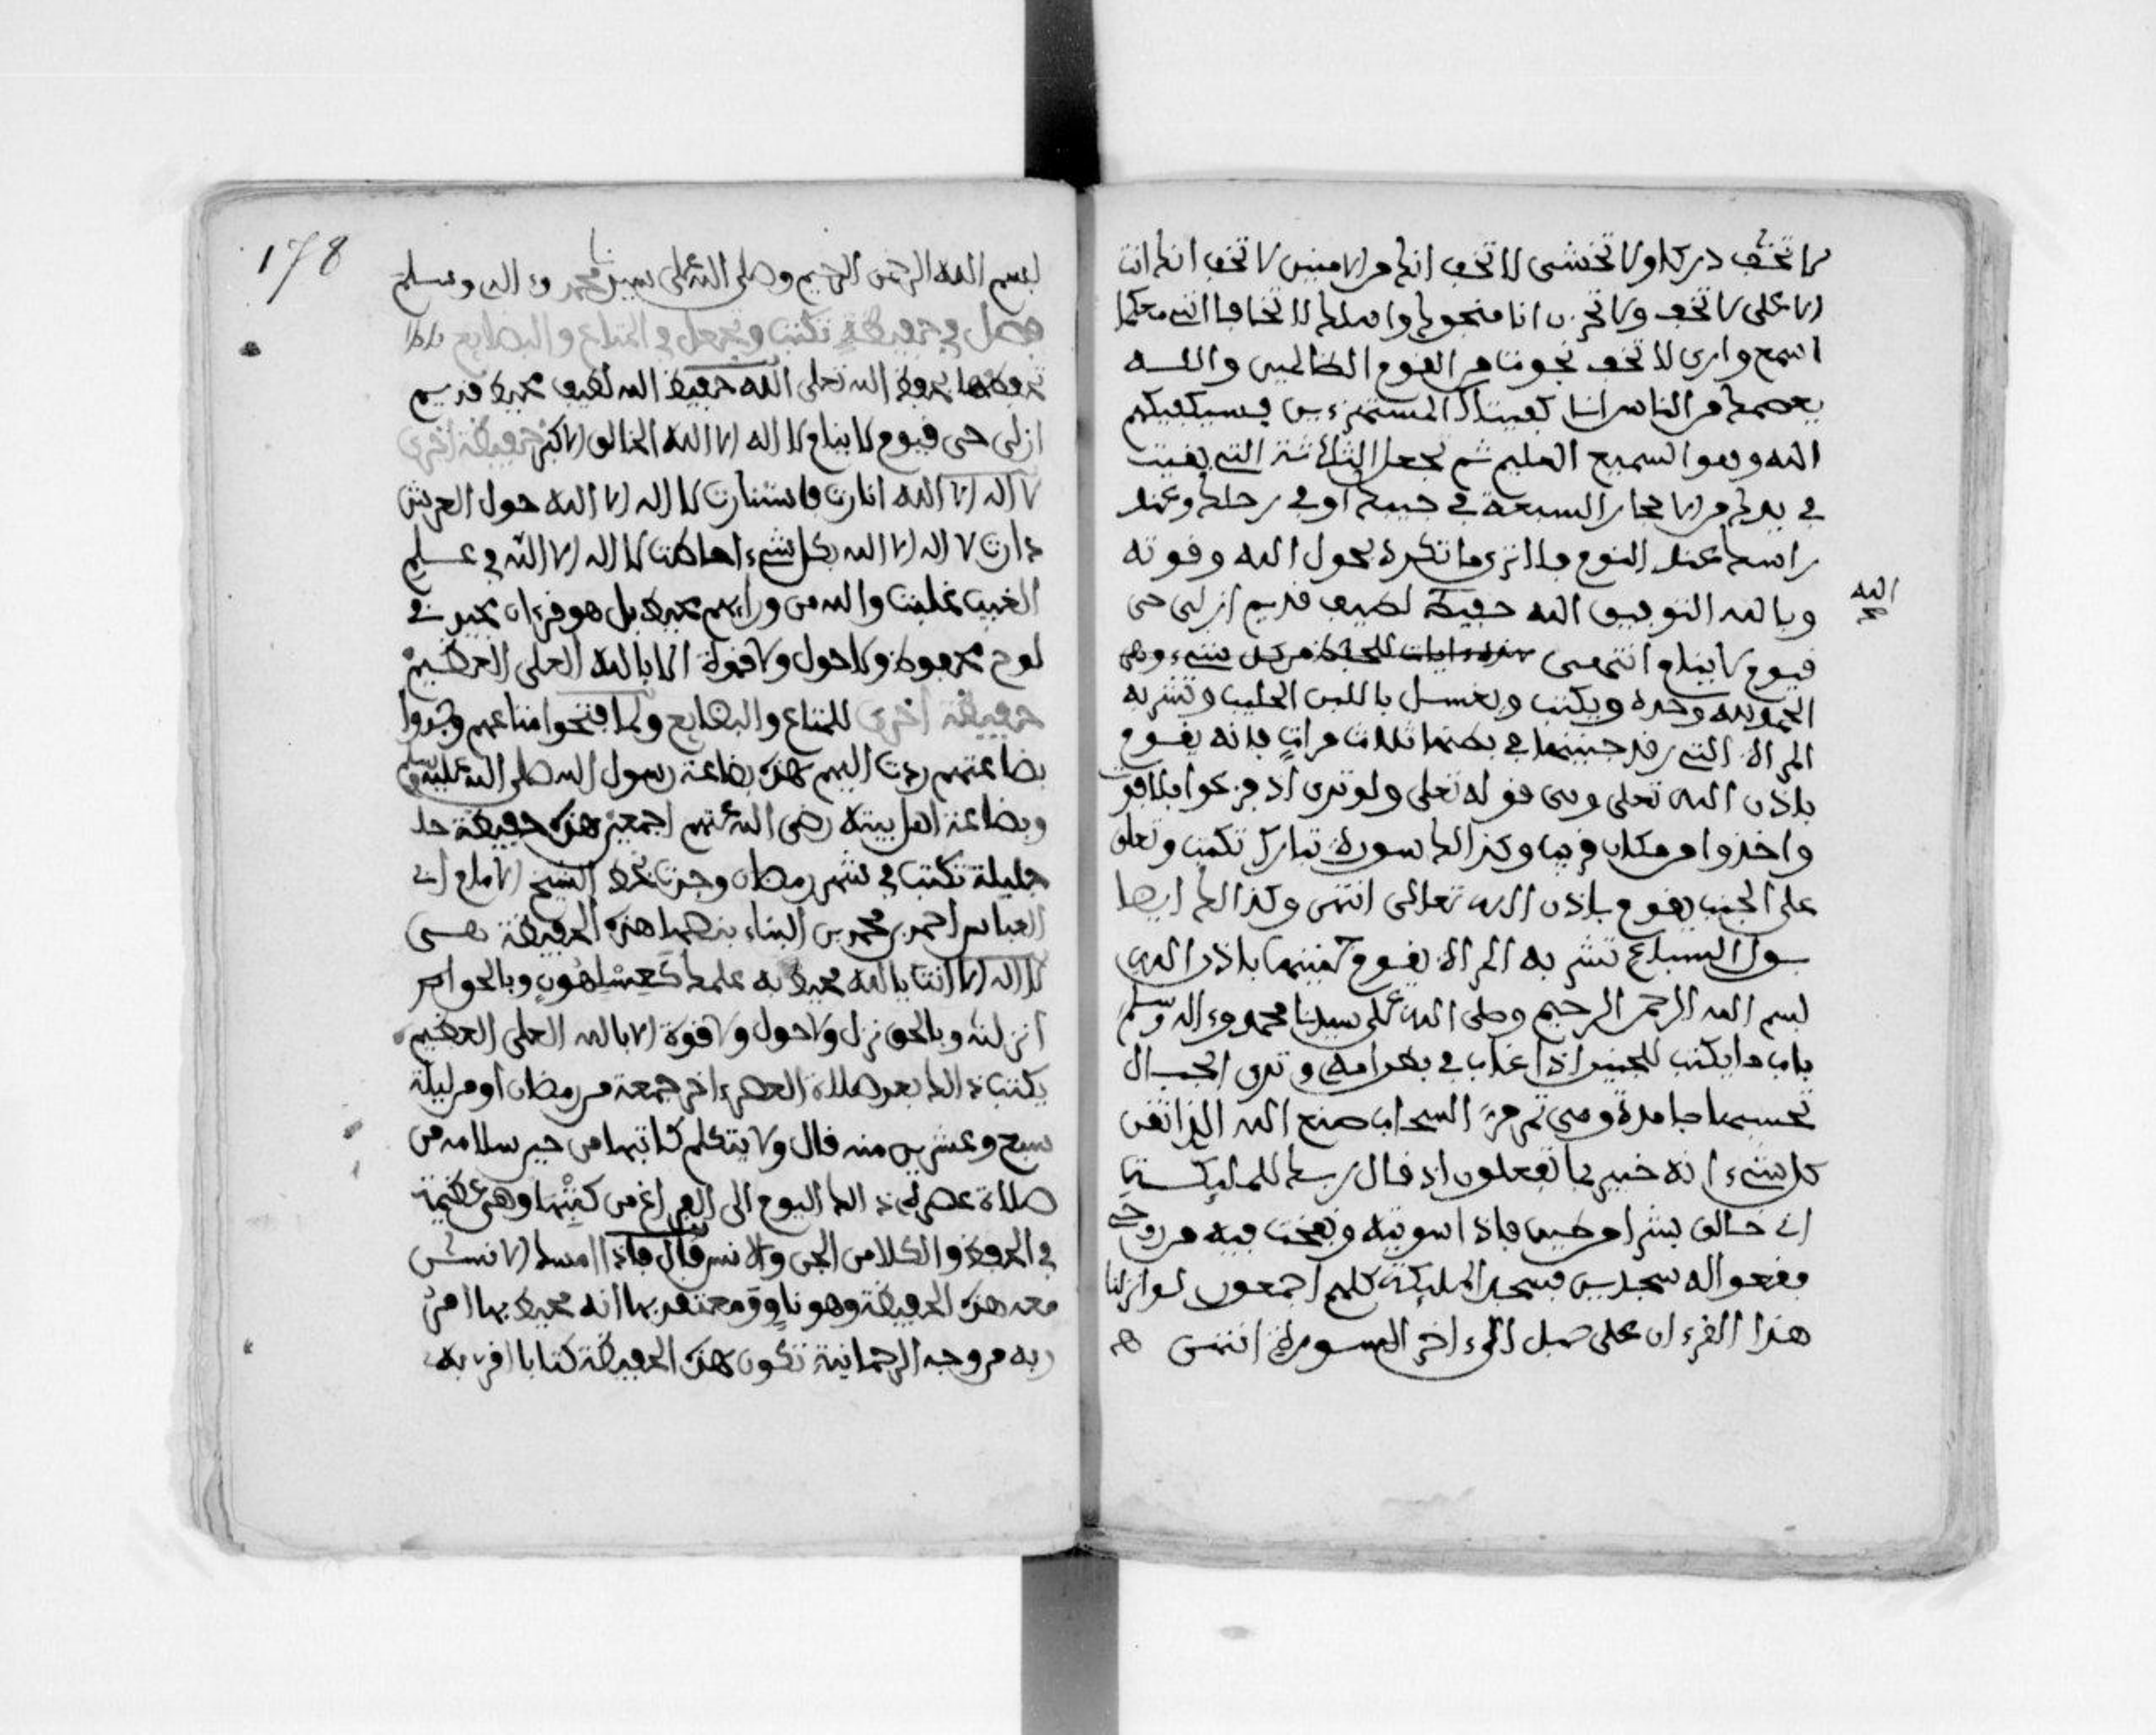 لا تخف دركا ولا تخشى لا تخف انك من الامنين لا تخف انك انت
الاعلى لا تخف ولا تحزن انا منجوك واهلك لا تخافا انني معكما
اسمع وارى لا تخف نجوت من القوم الظالمين والله
يعصمك من الناس انا كفيناك المستهزءين فسيكفيكهم
الله وهو السميع العليم ثم تجعل الثلاثة التي بقيت
في يدك من الاحجار السبعة في جيبك او في رحلك وعند
راسك عند النوم فلا ترى ما تكره بحول الله وقوته
وبالله التوفيق الله حفيظ لطيف قديم ازلي حي
الله
قيوم لا ينام انتهى
وحده ويكتب ويغسل باللبن الحليب وتشربه
المراة التي رقد جنينها في بطنها ثلاث مرات فانه يقوم
باذن الله تعلى وهي قوله تعلى ولو ترى اذ فزعوا فلا فوت
واخذوا من مكان قريب وكذالك سورة تبارك تكتب وتعلق
على الجنب يقوم باذن الله تعالى انتهى وكذالك ايضا
بول السباع تشربه المراة يقوم جنينها باذن الله
بسم الله الرحمن الرحيم وصلى الله على سيدنا محمد وءاله وسلم
باب ما يكتب للجنين اذا غاب في بطن امه وترى الجبال
تحسبها جامدة وهي تمر مر السحاب صنع الله الذي اتقن
كل شيء انه خبير بما تفعلون اذ قال ربك للمليكة
اني خالق بشرا من طين فاذا سويته ونفخت فيه من روحي
فقعوا له سجدين فسجد المليكة كلهم اجمعون لو انزلنا
هذا القرءان على جبل الى ءاخر السورة انتهى
178
بسم الله الرحمن الرحيم وصلى الله على سيدنا محمد وءاله وسلم
فصل في حفيظة تكتب وتجعل في المتاع والبضايع
تحفظها بحفظ الله تعلى الله حفيظ الله لطيف محيط قديم
ازلي حي قيوم لا ينام لا اله الا الله الخالق الاكبر حفيظة اخرى
لا اله الا الله انارت فاستنارت لا اله الا الله حول العرش
دارت لا اله الا الله بكل شيء احاطت لا اله الا الله في علم
الغيب غلبت والله من ورايهم محيط بل هو قرءان مجيد في
لوح محفوظ ولا حول ولا قوة الا بالله العلي العظيم
حفيظة اخرى للمتاع والبضايع ولما فتحوا متاعهم وجدوا
بضاعتهم ردت اليهم هذه بضاعة رسول الله صلى الله عليه وسلم
وبضاعة اهل بيته رضي الله عنهم اجمعين هذه حفيظة
جليلة تكتب في شهر رمضان وجدت بخط الشيخ الامام ابي
العباس احمد بن محمد بن البناء بنصها هذه الحفيظة هي
لا اله الا انت يا الله محيط به علمك كعسلهون وبالحق
انزلنه وبالحق نزل ولا حول ولا قوة الا بالله العلي العظيم
يكتب ذالك بعد صلاة العصر ءاخر جمعة من رمضان او من ليلة
سبع وعشرين منه قال ولا يتكلم كاتبها من حين سلامه من
صلاة عصر ذالك اليوم الى الفراغ من كتبها وهي عظيمة
في الحفظ والكلا من الجن والانس قال فاذا امسك الانسان
معه هذه الحفيظة وهو ناو ومعتقد بها انه محيط بها امر
ربه من وجه الرحمانية تكون هذه الحفيظة كتابا